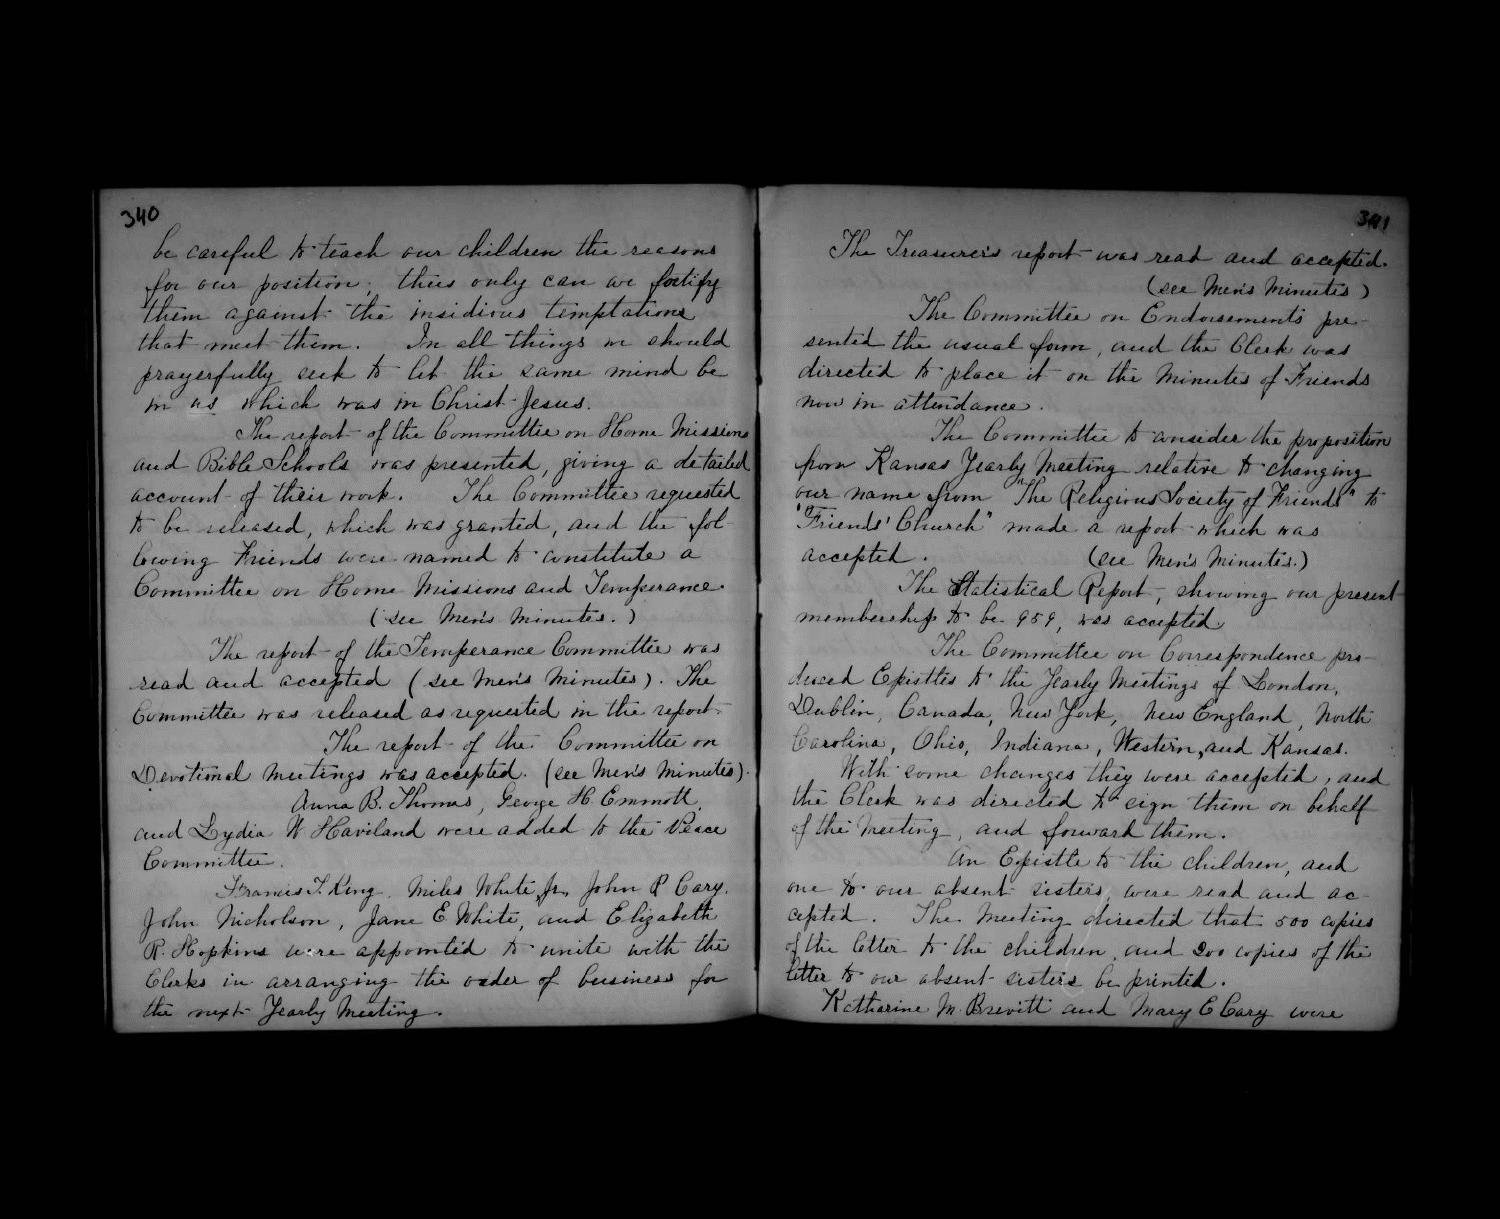 340
be careful to teach our children the reasons
for our position; thus only can we fortify
them against the insidious temptations
that meet them. In all things we should
prayerfully seek to let the same mind be
in us which was in Christ Jesus.
The report of the Committee on Home Missions
and Bible Schools was presented, giving a detailed
account of their work. The Committee requested
to be released, which was granted, and the fol-
lowing Friends were named to constitute a
Committee on Home Missions and Temperance.
(see Men's Minutes.)
The report of the Temperance Committee was
read and accepted (see Men's Minutes). The
Committee was released as requested in the report.
The report of the Committee on
Devotional Meetings was accepted. (see Men's Minutes).
Anna B. Thomas, George H. Emmott,
and Lydia W Haviland were added to the Peace
Committee.
Francis T. King, Miles White, Jr., John R Cary,
John Nicholson, Jane E White, and Elizabeth
R. Hopkins were appointed to unite with the
Clerks in arranging the order of business for
the next Yearly Meeting.
341
The Treasurer's report was read and accepted.
(see Men's Minutes)
The Committee on Endorsements pre-
sented the usual form, and the Clerk was
directed to place it on the Minutes of Friends
now in attendance.
The Committee to consider the proposition
from Kansas Yearly Meeting relative to changing
our name from "The Religious Society of Friends" to
"Friends' Church" made a report which was
accepted. (see Men's Minutes.)
The Statistical Report, showing our present
membership to be 959, was accepted
The Committee on Correspondence pro-
duced Epistles to the Yearly Meetings of London,
Dublin, Canada, New York, New England, North
Carolina, Ohio, Indiana, Western, and Kansas.
With some changes they were accepted, and
the Clerk was directed to sign them on behalf
of the Meeting, and forward them.
An Epistle to the children, and
one to our absent sisters, were read and ac-
cepted. The Meeting directed that 500 copies
of the letter to the children, and 200 copies of the
letter to our absent sisters be printed.
Katharine M. Brevitt and Mary E Cary were